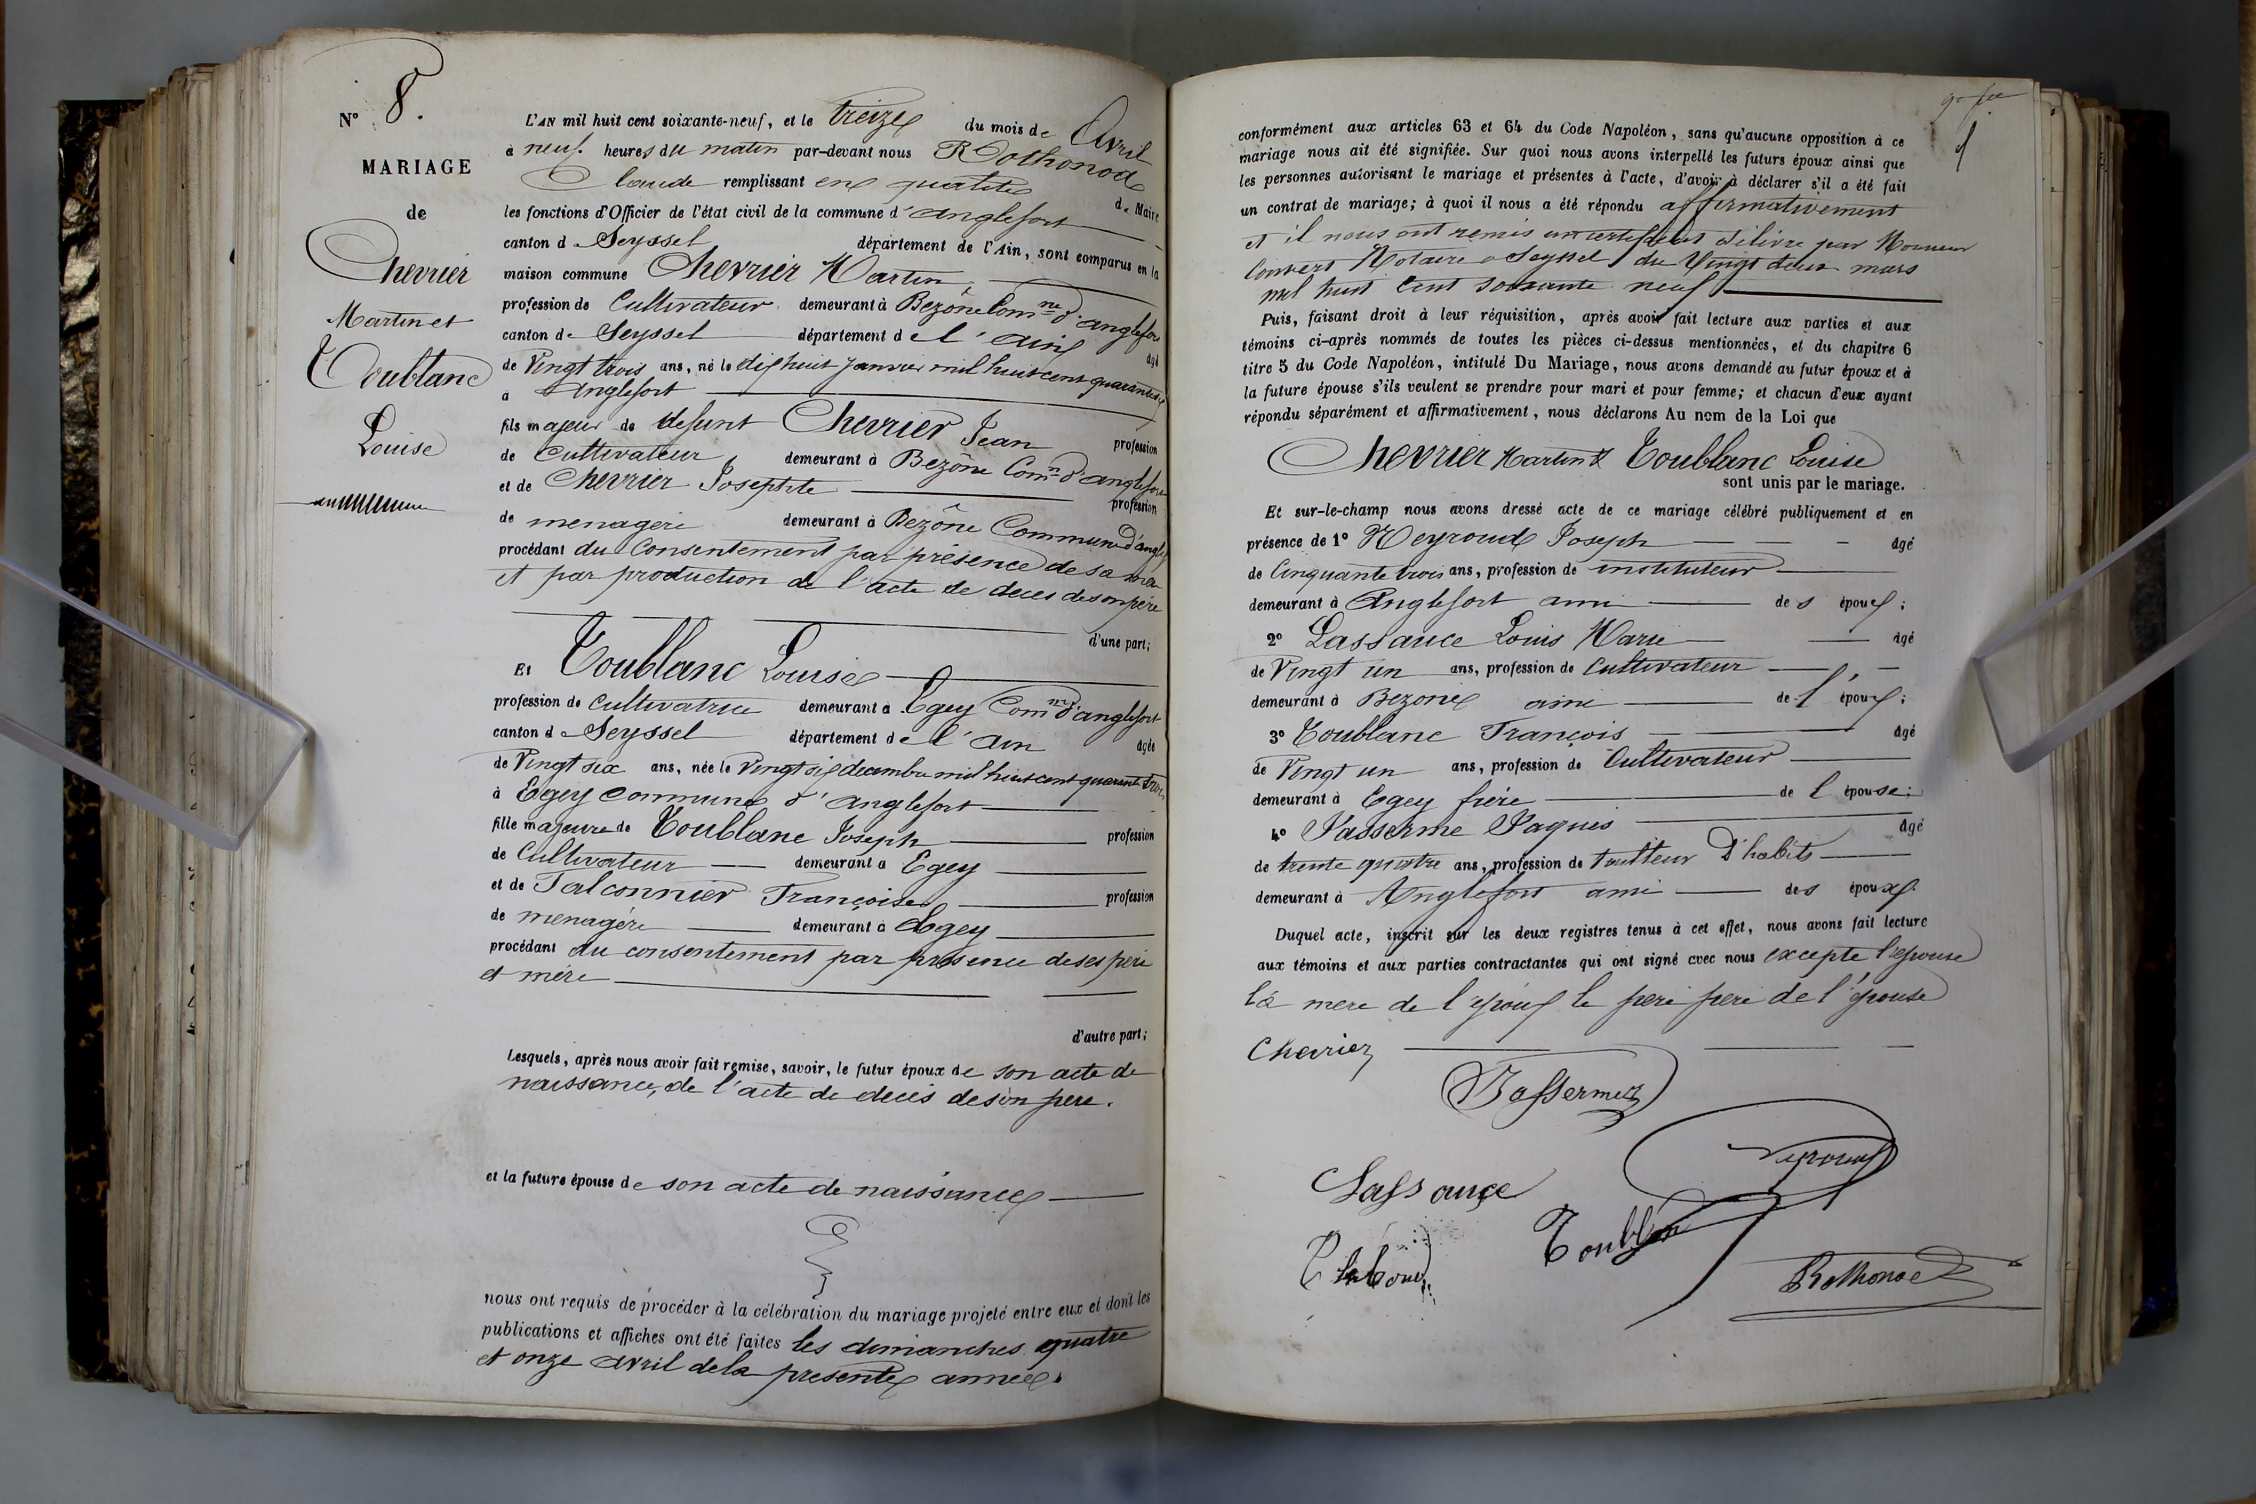 N° 8.
MARIAGE
de
Chevrier
Martin et
Toublanc
Louise
L'AN mil huit cent soixante-neuf, et le treize du mois de Avril
à neuf heures du matin par-devant nous Rothonod
Claude remplissant en qualité de Maire
les fonctions d'Officier de l'état civil de la commune d'anglefort
canton de Seyssel département de l'Ain, sont comparus en la
maison commune Chevrier Martin,
profession de Cultivateur demeurant à Bezône Comne d'anglefort
canton de Seyssel département de l'ain âgé
de Vingt trois ans, né le dix huit Janvier mil huit cent quarante six
à Anglefort
fils majeur de defunt Chevrier Jean profession
de Cultivateur demeurant à Bezône Comne d'anglefort
et de Chevrier Josephte profession
de menagère demeurant à Bezône Commune d'anglefort
procédant du Consentement par présence de sa mère
et par production de l'acte de deces de son père
d'une part;
Et Toublanc Louise
profession de Cultivatrice demeurant à Egey Comne d'anglefort
canton de Seyssel département de l'ain âgée
de Vingt six ans, née le Vingt six decembre mil huit cent quarante trois
à Egey commune d'anglefort
fille majeure de Toublanc Joseph profession
de Cultivateur demeurant à Egey
et de Falconnier Françoise profession
de menagère demeurant à Egey
procédant du consentement par présence de ses père
et mère
d'autre part;
Lesquels, après nous avoir fait remise, savoir, le futur époux de son acte de
naissance, de l'acte de decès de son père.
et la future épouse de son acte de naissance
nous ont requis de procéder à la célébration du mariage projeté entre eux et dont les
publications et affiches ont été faites les dimanches quatre
et onze avril de la presente année.
conformément aux articles 63 et 64 du Code Napoléon, sans qu'aucune opposition à ce
mariage nous ait été signifiée. Sur quoi nous avons interpellé les futurs époux ainsi que
les personnes autorisant le mariage et présentes à l'acte, d'avoir à déclarer s'il a été fait
un contrat de mariage; à quoi il nous a été répondu affirmativement
et il nous ont remis un certificat délivré par Monsieur
Convert Notaire a Seyssel du Vingt deux mars
mil huit Cent soixante neuf
Puis, faisant droit à leur réquisition, après avoir fait lecture aux parties et aux
témoins ci-après nommés de toutes les pièces ci-dessus mentionnées, et du chapitre 6
titre 5 du Code Napoléon, intitulé Du Mariage, nous avons demandé au futur époux et à
la future épouse s'ils veulent se prendre pour mari et pour femme; et chacun d'eux ayant
répondu séparément et affirmativement, nous déclarons Au nom de la Loi que
Chevrier Martin & Toublanc Louise
sont unis par le mariage.
Et sur-le-champ nous avons dressé acte de ce mariage célébré publiquement et en
présence de 1° Neyroud Joseph âgé
de Cinquante trois ans, profession de instituteur
demeurant à Anglefort ami des époux;
2° Lassauce Louis Marie âgé
de Vingt un ans, profession de Cultivateur
demeurant à Bezone ami de l'époux;
3° Toublanc François âgé
de Vingt un ans, profession de Cultivateur
demeurant à Egey frère de l'épouse;
4° Passerme Jaques âgé
de trente quatre ans, profession de tailleur d'habits
demeurant à Anglefort ami des époux
Duquel acte, inscrit sur les deux registres tenus à cet effet, nous avons fait lecture
aux témoins et aux parties contractantes qui ont signé avec nous excepte l'épouse
la mere de l'époux le peri pere de l'épouse
Chevrier
Passerme
Neyroud
Lassauce
Toublan
Rothonod